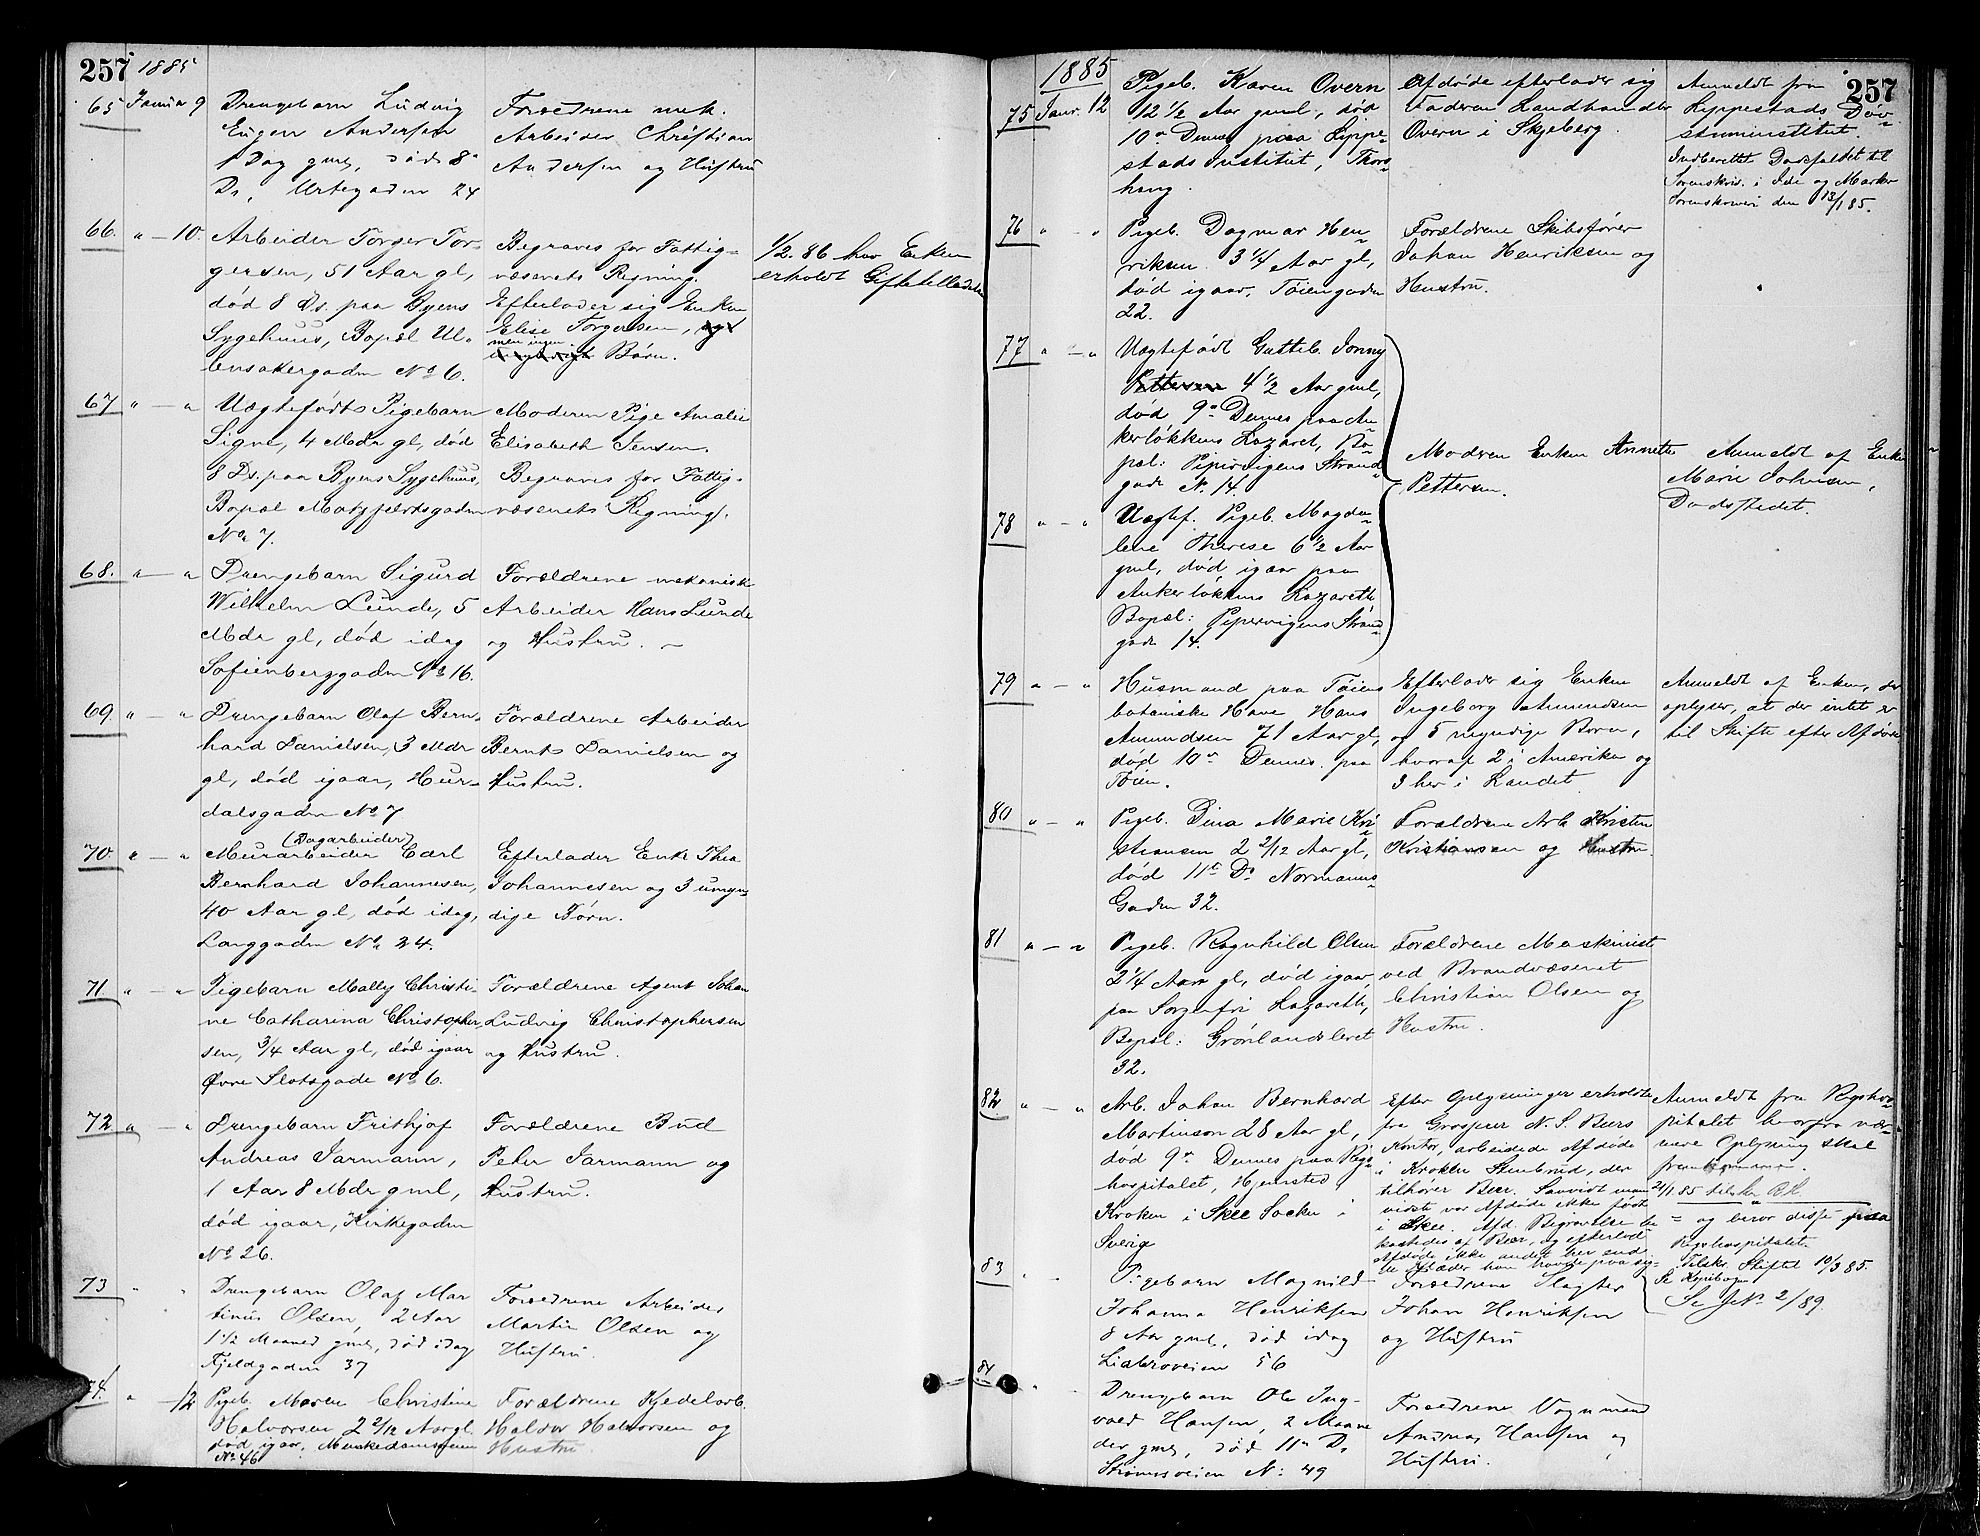 257 1885
65 Januar 9 Drengebarn Ludvig
Eugen Andersen
1 Dag gml, død 8de
Ds, Urtegaden 24
Forældrene mek.
Arbeider Christian
Andersen og Hustru
66. " — 10. Arbeider Torger Tor-
gersen, 51 Aar gl,
død 8 Ds. paa Byens
Sygehuus, Bopæl Ul-
lensakergaden No 6.
Begraves for Fattig-
væsenets Regning.
Efterlader sig Enken
Elise Torgersen, og
men ingen
Børn.
1/2. 86 har Enken
erholdt Giftetilladelse
67 " — " Uægtefødt Pigebarn
Signe, 4 Mdr gl, død
8 Ds. paa Byens Sygehuus,
Bopæl Motzfeldtsgaden
No 7.
Moderen Pige Amalie
Elisabeth Jensen.
Begraves for Fattig-
væsenets Regning.
68. " — " Drengebarn Sigurd
Wilhelm Lunde, 5
Mdr gl, død idag
Sofienberggaden No 16.
Forældrene mekanisk
Arbeider Hans Lunde
og Hustru. —
69. " — " Drengebarn Olaf Bern-
hard Danielsen, 3 Mdr
gl, død igaar, Hur-
dalsgaden No 7
Forældrene Arbeider
Bernts Danielsen og
Hustru.
70. " — " (Dagarbeider)
Murarbeider Carl
Bernhard Johannesen,
40 Aar gl, død idag,
Langgaden No 24.
Efterlader Enke Thea
Johannesen og 3 umyn-
dige Børn.
71. " — " Pigebarn Mally Christi-
ne Catharina Christopher
sen, 3/4 Aar gl, død igaar
Øvre Slotsgade No 6.
Forældrene Agent Johan
Ludvig Christophersen
og Hustru.
72 " — " Drengebarn Frithjof
Andreas Jarmann,
1 Aar 8 Mdr gml,
død igaar, Kirkegaden
No 26.
Forældrene Bud
Peter Jarmann og
Hustru.
73 " " Drengebarn Olaf Mar
tinus Olsen, 2 Aar
1 1/2 Maaned gml, død idag
Fjeldgaden 37
Forældrene Arbeider
Martin Olsen og
Hustru.
74. " — 12 Pigeb. Maren Christine
Halvorsen 2 2/12 Aar gl.
død igaar, Munkedamsveien
No 46
Forældrene Kjedelarb.
Halvor Halvorsen og
Hustru.
1885 257
75 Janr. 12 Pigeb. Karen Overn
12 1/2 Aar gml, død
10de Dennes paa Lippe-
stads Institut, Thors-
haug.
Afdøde efterlader sig
Faderen Landhandler
Overn i Skjeberg.
Anmeldt fra
Lippestads Døv-
stuminstitut.
Indberettet Dødsfaldet til
Sorenskriv. i Ide og Marker
Sorenskriveri den 13/1 85.
76 " - " Pigeb. Dagmar Hen-
riksen 3 1/4 Aar gl,
død igaar, Tøiengaden
22.
Forældrene Skibsfører
Johan Henriksen og
Hustru.
77 " — " Uægtefødt Gutteb. Jonny
Pettersen 4 1/2 Aar gml,
død 9de Dennes paa An-
kerløkkens Lazaret, Bo-
pæl: Pipervigens Strand-
gade N. 14.
Modren Enken Annette
Pettersen.
Anmeldt af Enke
Marie Johnsen,
Dødsstedet.
78 " — " Uægtef. Pigeb. Magda-
lene Therese 6 1/2 Aar
gml, død igaar paa
Ankerløkkens Lazareth
Bopæl: Pipervigens Strand-
gade 14.
79 " — " Husmand paa Tøiens
botaniske Have Hans
Amundsen 71 Aar gl,
død 10de Dennes paa
Tøien.
Efterlader sig Enken
Ingeborg Amundsen
og 5 myndige Børn,
hvoraf 2 i Amerika og
3 her i Landet
Anmeldt af Enken, der
oplyser, at der intet er
til Skifte efter Afdøde
80 " — " Pigeb. Dina Marie Kri-
stiansen 2 2/12 Aar gl,
død 11te Ds Normanns-
Gaden 32.
Forældrene Arb. Kristen
Kristiansen og Hustru.
81 " — " Pigeb. Ragnhild Olsen
2 1/4 Aar gl, død igaar
paa Sorgenfri Lazareth,
Bopæl: Grønlandsleret
32.
Forældrene Maskinist
ved Brandvæsenet
Christian Olsen og
Hustru.
82 " — " Arb. Johan Bernhard
Martinson 28 Aar gl,
død 9de Dennes paa Rigs-
hospitalet, Hjemsted
Kroken i Skee Socken i
Sverig
Efter Oplysninger erholdte
fra Grosserer N. S. Beers
Kontor, arbeidede Afdøde
i Kroken Stenbrud, der
tilhører Beer. Saavidt man
vidste var Afdøde ikke født
i Skee. Afd. Begravelse be
kostedes af Beer, og efterlod
Afdøde ikke andet her end
de Klæder han havde paa sig-
Anmeldt fra Rigshos-
pitalet hvorfra nær-
mere Oplysning skal
fremkomme.
= og beror disse paa
Rigshospitalet.
Skiftet 10/3 85.
Se Kopibogen
Se JNo 2/89.
83 " " Pigebarn Magnild
Johanna Henriksen
8 Aar gml, død idag
Liabroveien 56
Forældrene Slagter
Johan Henriksen
og Hustru
84 " " Drengebarn Ole Ing-
vald Hansen, 2 Maane
der gml, død 11te Ds
Strømsveien N: 49
Forældrene Vognmand
Andreas Hansen og
Hustru.